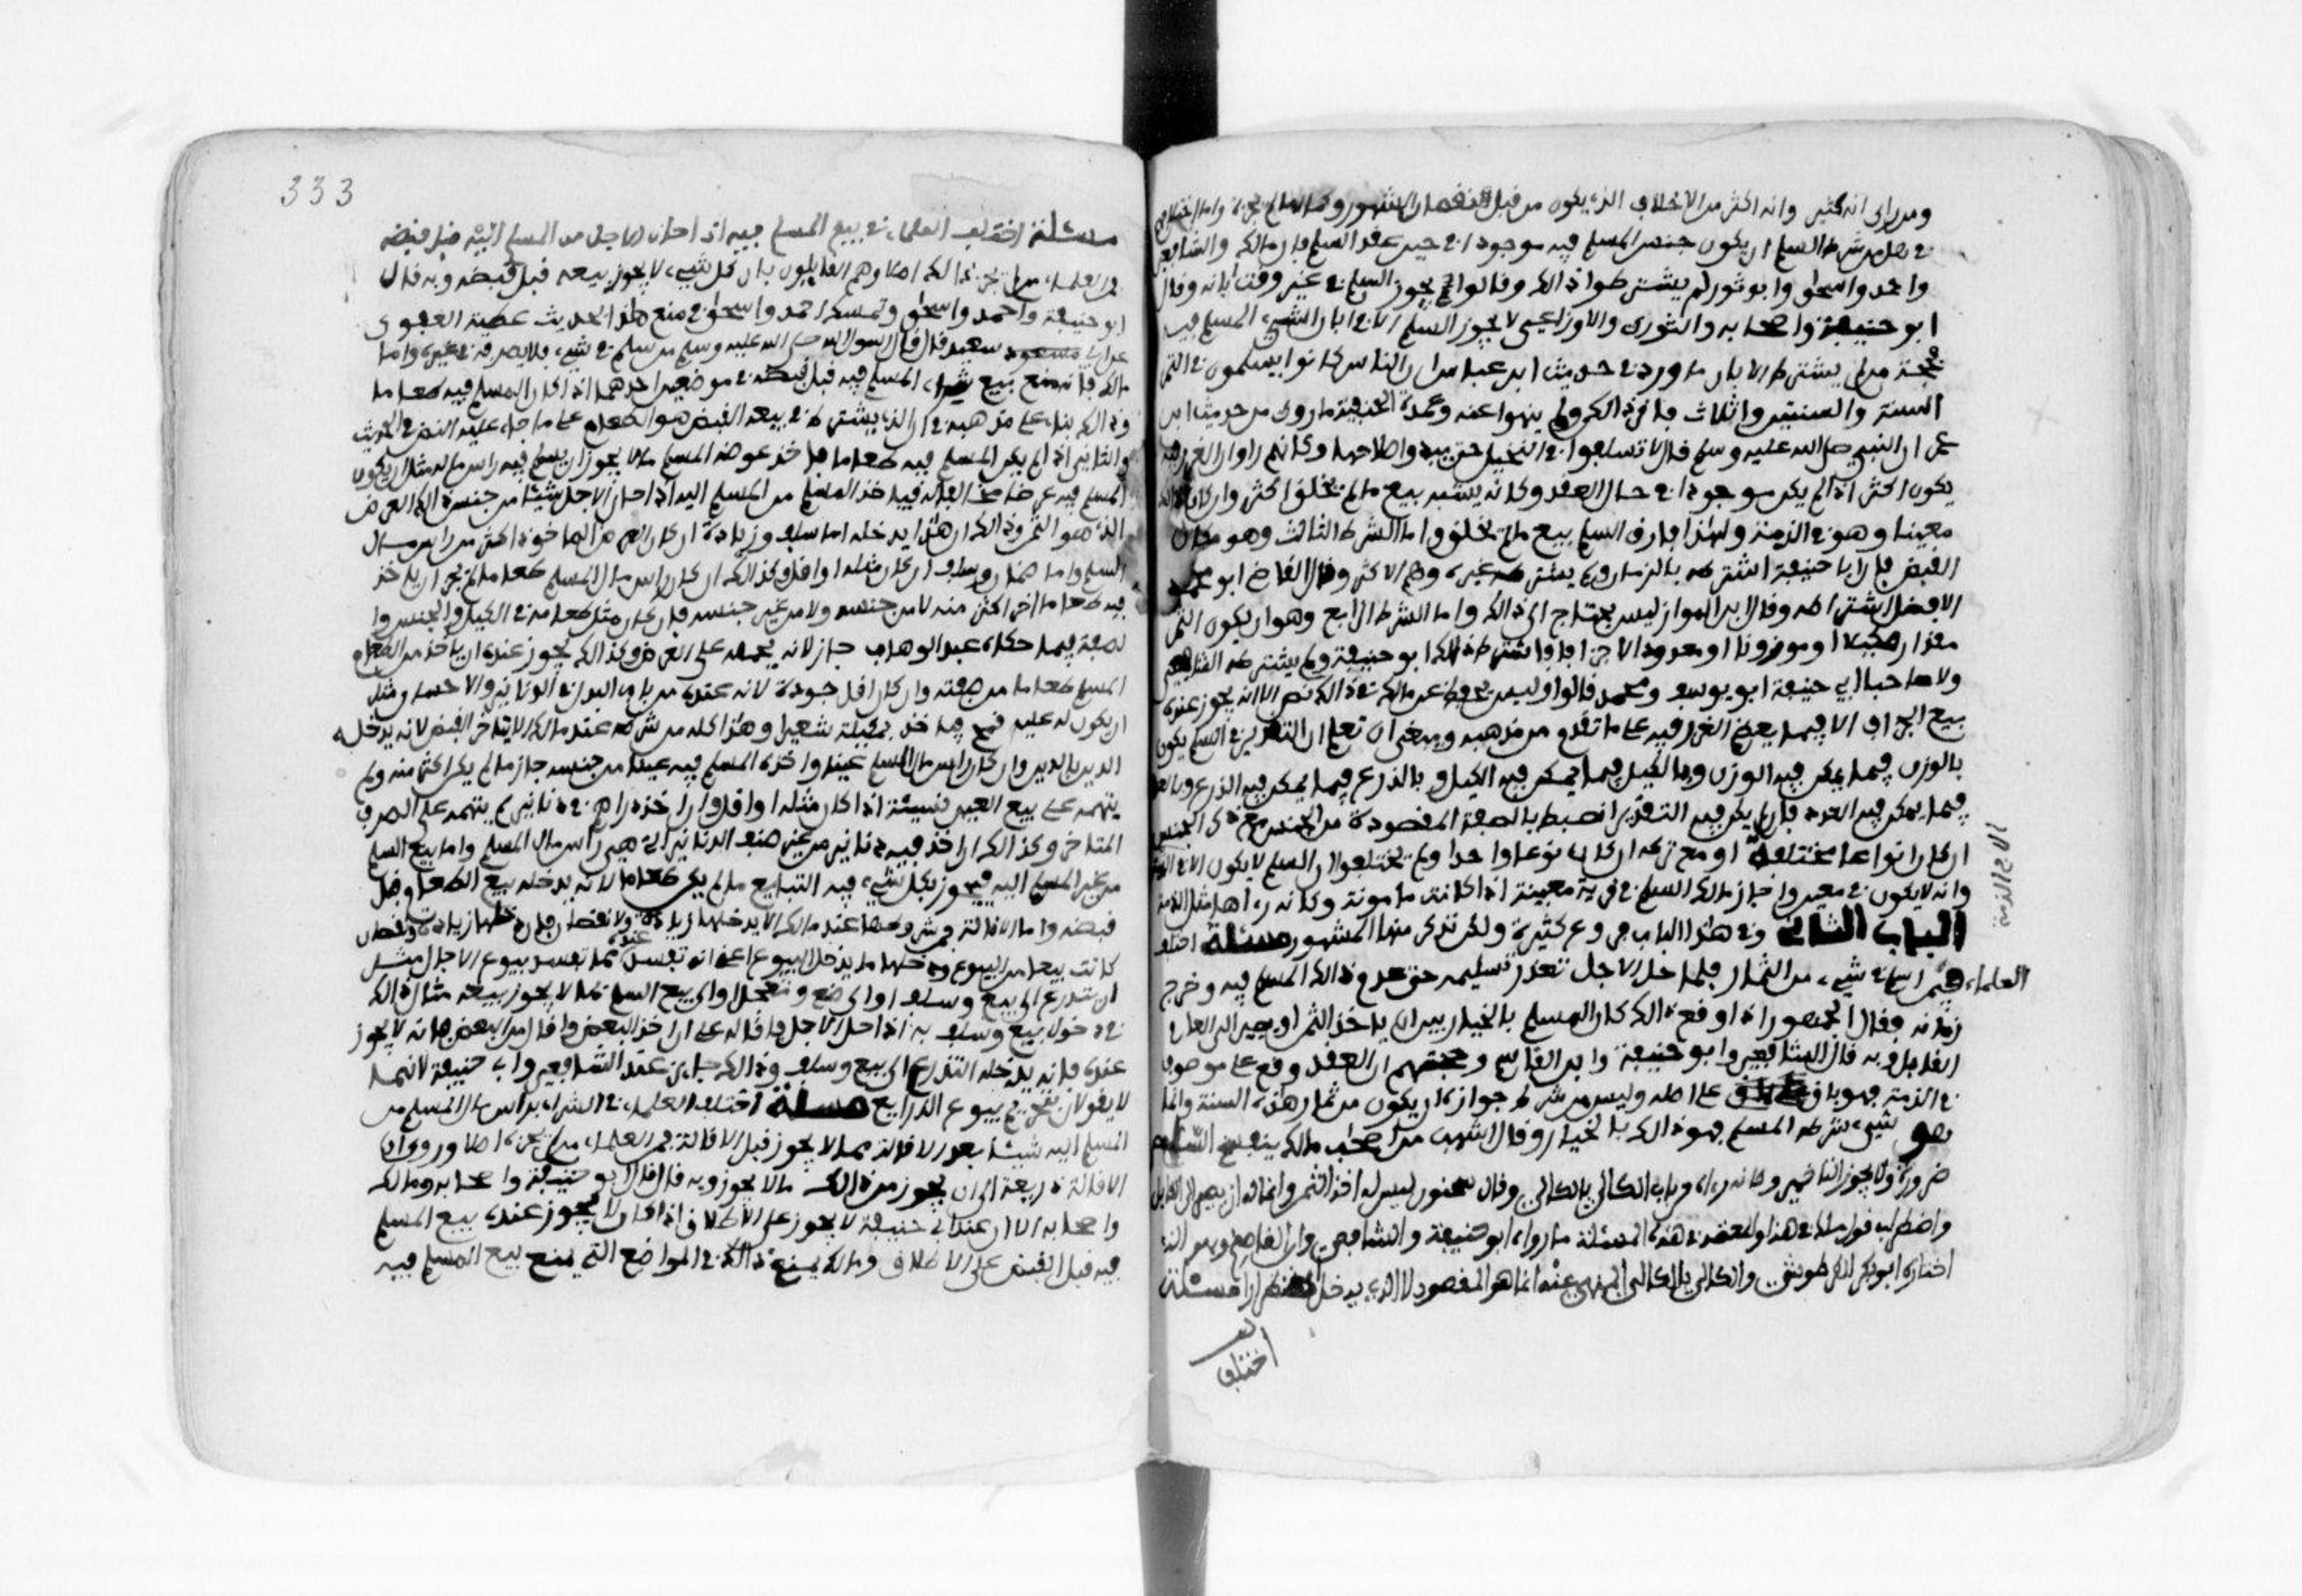 ومن راى انه كثير وانه اكثر من الاختلاف الذي يكون من قبل النقصان المشهور وكماله لم يجزه واما اختلافهم
في هل من شرط السلم ان يكون جنس المسلم فيه موجودا في حين عقد السلم فان مالكه والشافعي
واحمد واسحاق وابو ثور لم يشترطوا ذالك وقالوا يجوز السلم في غير وقت ابانه وقال
ابو حنيفة واصحابه والثوري والاوزاعي لا يجوز السلم الا في ابان الشيء المسلم فيه
فحجة من لم يشترط الابان ما ورد في حديث ابن عباس ان الناس كانوا يسلمون في التمر
السنتين والثلاث فاقروا ذالك ولم ينهوا عنه وعمدة الحنفية ما روي من حديث ابن
عمر ان النبي صلى الله عليه وسلم قال لا تسلموا في النخيل حتى يبدو صلاحها وكانهم راوا ان الغرر فيه
يكون اكثر اذا لم يكن موجودا في حال العقد وكانه يشبه بيع ما لم يخلق اكثر وان كان ذالك
معينا وهو في الذمة ولهذا فارق السلم بيع ما لم يخلق واما الشرط الثالث وهو مكان
القبض فان ابا حنيفة اشترطه بالزمان ولم يشترطه غيره وهم الاكثر وقال القاضي ابو محمد
الافضل اشتراطه وقال ابن المواز ليس يحتاج الى ذالك واما الشرط الرابع وهو ان يكون الثمن
مقدرا مكيلا او موزونا او معدودا لا جزافا فاشترط ذالك ابو حنيفة ولم يشترطه الشافعي
ولا صاحبا ابي حنيفة ابو يوسف ومحمد قالوا وليس يحفظ عن مالك في ذالك نص الا انه يجوز عنده
بيع الجزاف الا فيما يعظم الغرر فيه على ما تقدم من مذهبه وينبغي ان تعلم ان التقدير في السلم يكون
بالوزن فيما يمكن فيه الوزن وبالكيل فيما يمكن فيه الكيل وبالذرع فيما يمكن فيه الذرع وبالعدد
فيما يمكن فيه العدد فان لم يكن فيه التقدير انضبط بالصفة المقصودة من الجنس مع ذكر الجنس
ان كان انواعا مختلفة او مع تركه ان كان نوعا واحدا ولم يختلفوا ان السلم لا يكون الا في الذمة
وانه لا يكون في معين واجاز مالك السلم في قرية معينة اذا كانت مامونة وكانه راها مثل الذمة
الباب الثاني وفي هذا الباب فروع كثيرة ولكن نذكر منها المشهور مسئلة اختلف
العلماء فيمن اسلم في شيء من الثمار فلما حل الاجل تعذر تسليمه حتى عدم ذالك المسلم فيه وخرج
زمانه فقال الجمهور اذا وقع ذالك كان المسلم بالخيار بين ان ياخذ الثمن او يصبر الى العام
القابل وبه قال الشافعي وابو حنيفة وابن القاسم وحجتهم ان العقد وقع على موصوف
في الذمة فهو باق على اصله وليس من شرط جوازه ان يكون من ثمار هذه السنة وانما
هو شيء شرطه المسلم فهو ذالك بالخيار وقال اشهب من اصحاب مالك ينفسخ السلم
ضرورة ولا يجوز التاخير وكانه راه من باب الكالي بالكالي وقال سحنون ليس له اخذ الثمن وانما له ان يصبر الى القابل
واضطرب قول مالك في هذا والمعتمد في هذه المسئلة ما رواه ابو حنيفة والشافعي وابن القاسم وهو الذي
اختاره ابو بكر الطرطوشي والكالي بالكالي المنهي عنه انما هو المقصود لا الذي يدخل اضطرارا مسئلة
اختلف
333
مسئلة اختلف العلماء في بيع المسلم فيه اذا حان الاجل من المسلم اليه قبل قبضه
فمن العلماء من لم يجز ذالك اصلا وهم القايلون بان كل شيء لا يجوز بيعه قبل قبضه وبه قال
ابو حنيفة واحمد واسحاق وتمسك احمد واسحاق في منع هذا بحديث عطية العوفي
عن ابي سعيد قال قال رسول الله صلى الله عليه وسلم من اسلم في شيء فلا يصرفه في غيره واما
مالك فانه منع بيع المسلم فيه قبل قبضه في موضعين احدهما اذا كان المسلم فيه طعاما
وذالك بناء على مذهبه في ان الذي يشترط في بيعه القبض هو الطعام على ما جاء عليه النص في الحديث
والثاني اذا لم يكن المسلم فيه طعاما فاخذ عوضه المسلم ما لا يجوز ان يسلم فيه راس ماله مثل ان يكون
المسلم فيه عرضا فياخذ المسلم من المسلم اليه اذا حان الاجل شيئا من جنس ذالك العرض
الذي هو الثمن وذالك ان هذا يدخله اما سلف وزيادة ان كان العرض الماخوذ اكثر من راس مال
السلم واما ضمان وسلف ان كان مثله او اقل وكذالك ان كان راس مال السلم طعاما لم يجز ان ياخذ
فيه طعاما اخر اكثر منه لا من جنسه ولا من غير جنسه فان كان مثل طعامه في الكيل والجنس وا
لصفة فيما حكاه عبد الوهاب جاز لانه يحمله على العرض وكذالك يجوز عنده ان ياخذ من الطعام
المسلم طعاما من صفته وان كان اقل جودة لانه عنده من باب البدل في الدنانير والاحسان مثل
ان يكون له عليه قمح فياخذ بمكيلة شعيرا وهذا كله من شرطه عند مالك ان لا يتاخر القبض لانه يدخله
الدين بالدين وان كان راس مال السلم عينا واخذ المسلم فيه عينا من جنسه جاز ما لم يكن اكثر منه ولم
يتهمه على بيع العين نسيئة اذا كان مثله او اقل وان اخذ دراهم في دنانير لم يتهمه على الصرف
المتاخر وكذالك ان اخذ فيه دنانير من غير صنف الدنانير التي هي راس مال السلم واما بيع السلم
من غير المسلم اليه فيجوز بكل شيء فيه التبايع ما لم يكن طعاما لانه يدخله بيع الطعام قبل
قبضه واما الاقالة فمن شروطها عند مالك الا يدخلها زيادة ولا نقصان فان دخلها زيادة او نقصان
كانت بيعا من البيوع ودخلها ما يدخل البيوع اعني انه تفسد عنده بما تفسد بيوع الاجال مثل
ان يتذرع الى بيع وسلف او الى ضع وتعجل او الى بيع السلم بما لا يجوز بيعه مثال ذالك
في دخول بيع وسلف به اذا حل الاجل فاقاله على ان اخذ البعض واقال من البعض فانه لا يجوز
عنده فانه يدخله التذرع الى بيع وسلف وذالك جايز عند الشافعي وابي حنيفة لانهما
لا يقولان بتحريم بيوع الذرايع مسئلة اختلف العلماء في الشراء براس مال المسلم من
المسلم اليه شيئا بعد الاقالة بما لا يجوز قبل الاقالة فمن العلماء من لم يجزه اصلا وروى ان
الاقالة ذريعة الى ان يجوز من ذالك ما لا يجوز وبه قال ابو حنيفة واصحابه ومالك
واصحابه الا ان عند ابي حنيفة لا يجوز على الاطلاق اذا كان لا يجوز عنده بيع المسلم
فيه قبل القبض على الاطلاق ومالك يمنع ذالك في المواضع التي يمنع بيع المسلم فيه